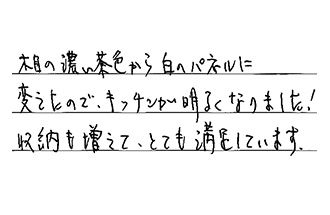 木目の濃い茶色から白のパネルに
変えたので、キッチンが明るくなりました！
収納も増えて、とても満足しています。